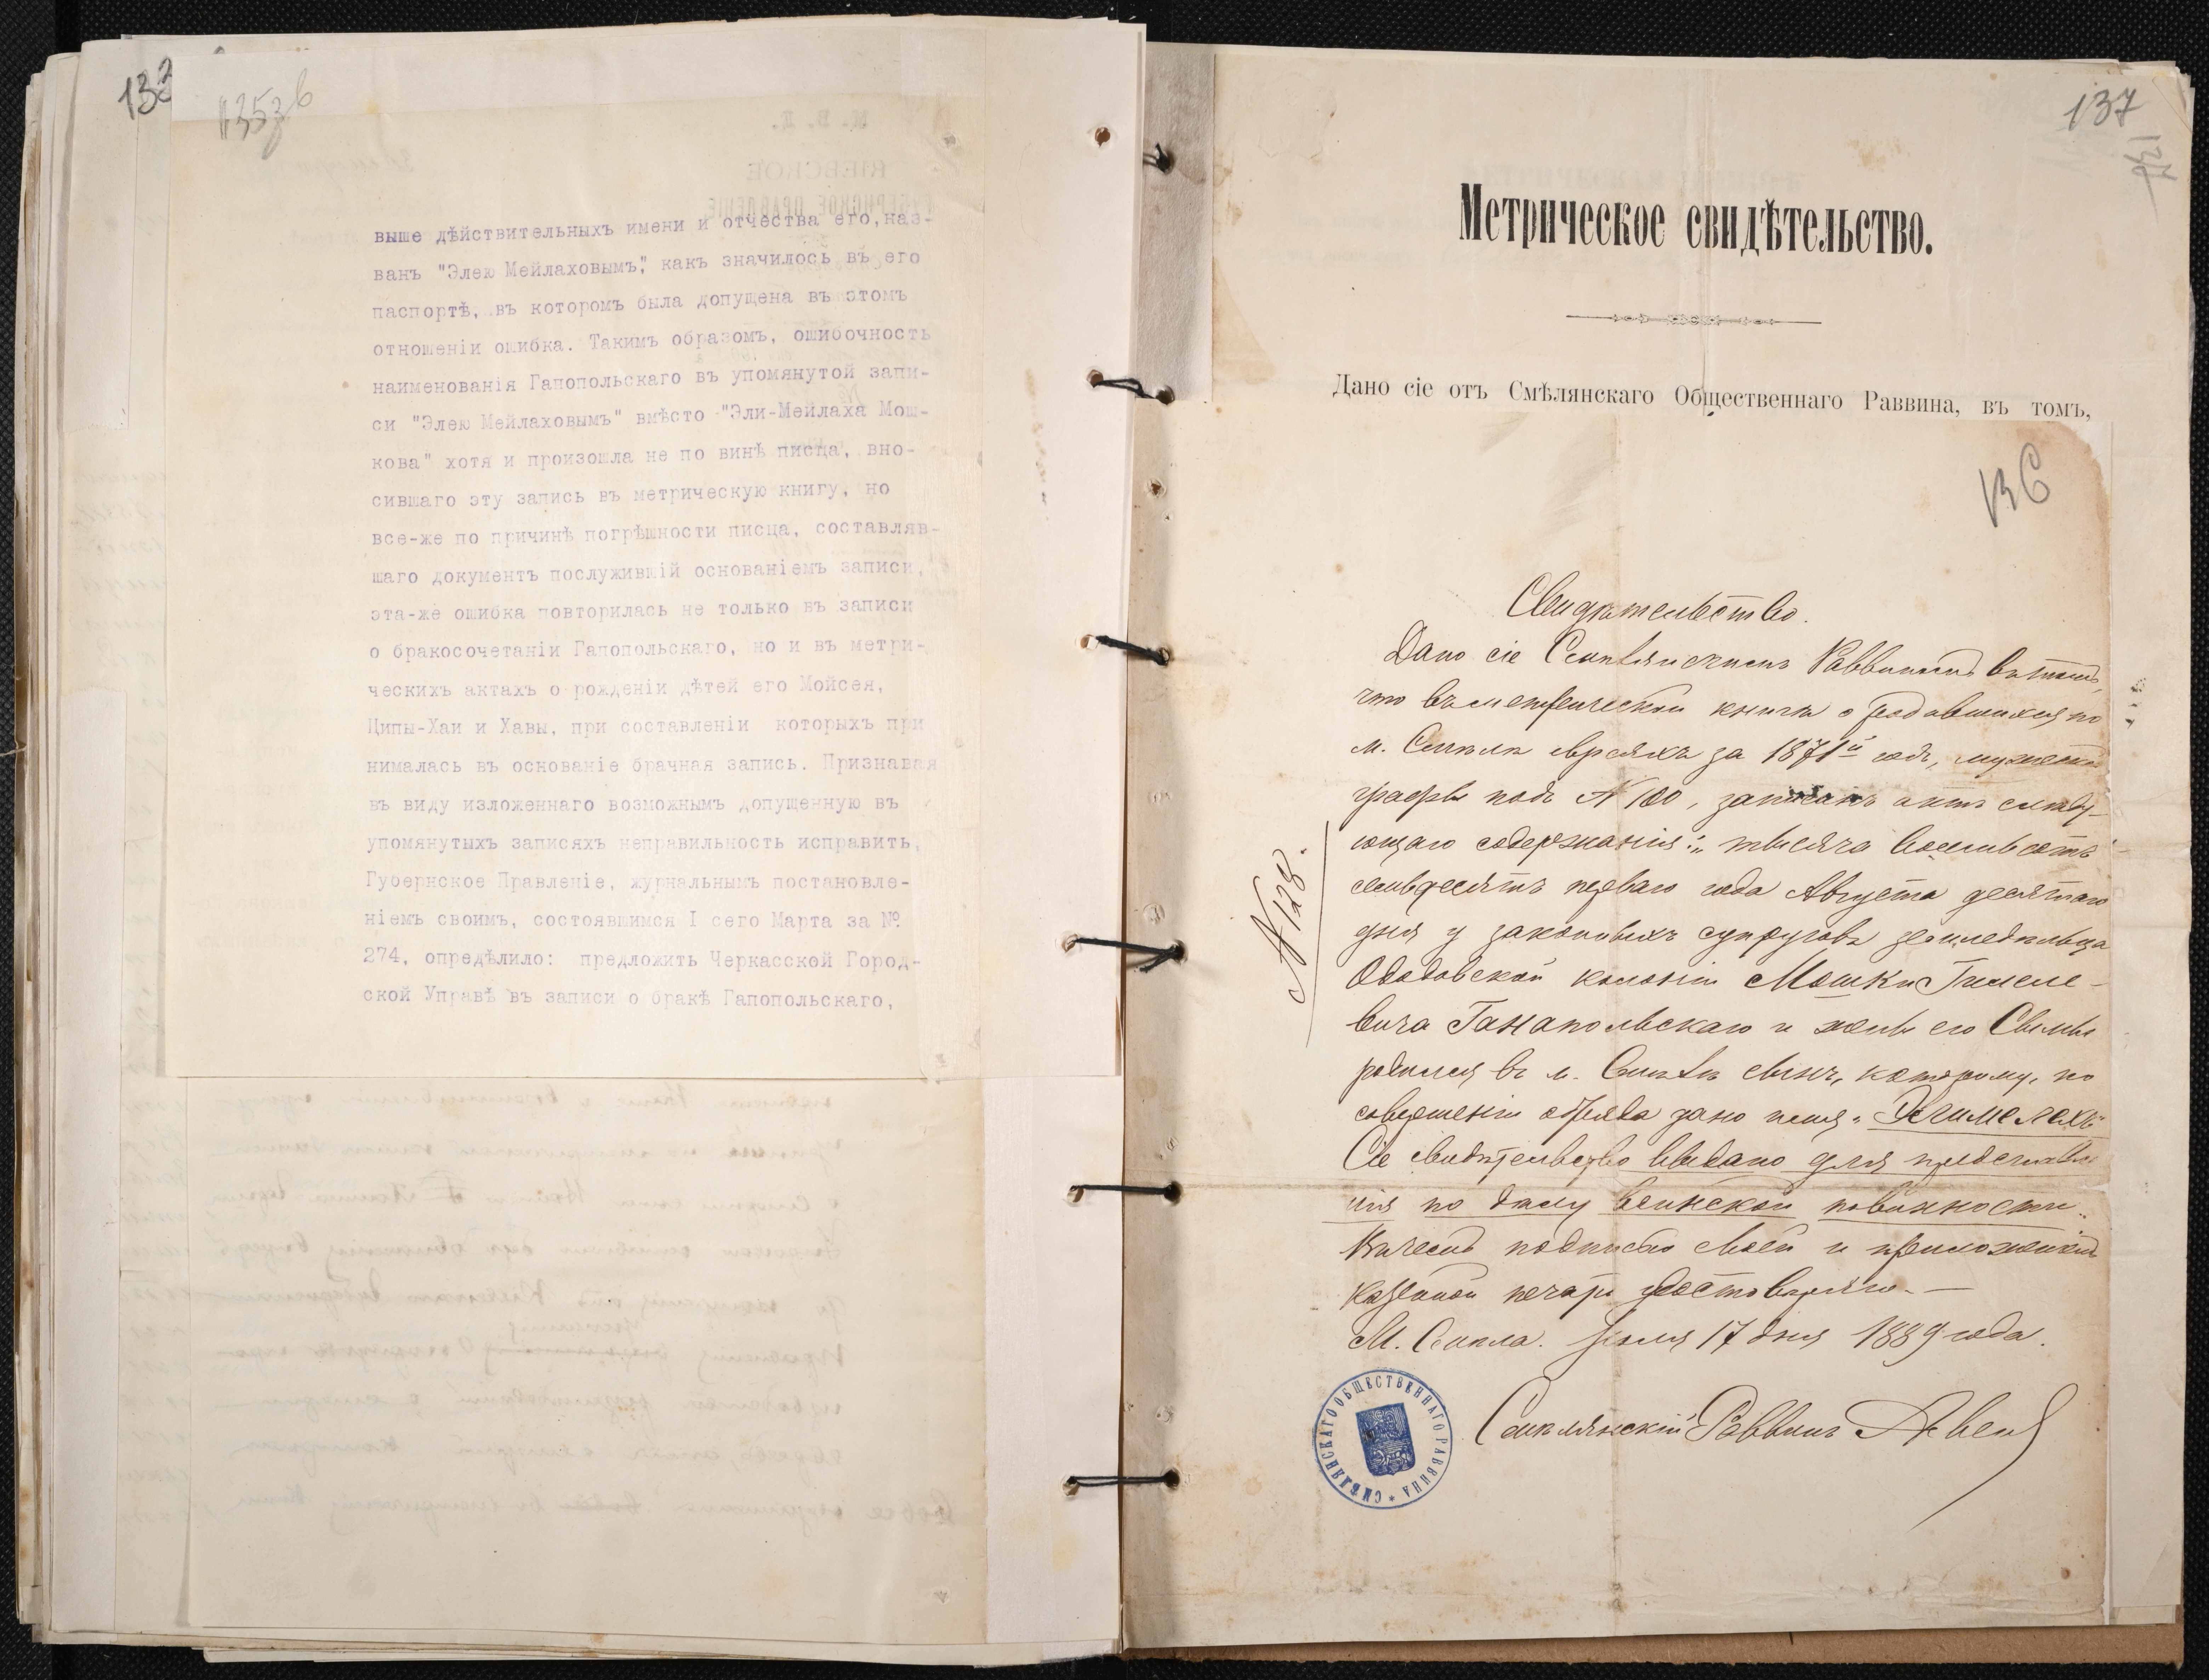 133
135 зв
выше дѣйствительныхъ имени и отчества его, наз-
ванъ "Элею Мейлаховымъ", какъ значилось въ его
паспортѣ, въ которомъ была допущена въ этомъ
отношеніи ошибка. Такимъ образомъ, ошибочность
наименованія Гапопольскаго въ упомянутой запи-
си "Элею Мейлаховымъ" вмѣсто "Эли-Мейлаха Мош-
кова" хотя и произошла не по винѣ писца, вно-
сившаго эту запись въ метрическую книгу, но
все-же по причинѣ погрѣшности писца, составляв-
шаго документъ послужившій основаніемъ записи,
эта-же ошибка повторилась не только въ записи
о бракосочетаніи Гапопольскаго, но и въ метри-
ческихъ актахъ о рожденіи дѣтей его Мойсея,
Ципы-Хаи и Хавы, при составленіи которыхъ при
нималась въ основаніе брачная запись. Признавая
въ виду изложеннаго возможнымъ допущенную въ
упомянутыхъ записяхъ неправильность исправить,
Губернское Правленіе, журнальнымъ постановле-
ніемъ своимъ, состоявшимся I сего Марта за №
274, опредѣлило: предложить Черкасской Город-
ской Управѣ въ записи о бракѣ Гапопольскаго,
137
Метрическое свидѣтельство.
Дано сіе отъ Смѣлянскаго Общественнаго Раввина, въ томъ,
136
Свидѣтельство.
Дано сіе Смѣлянскимъ Раввиномъ въ томъ,
что въ метрической книгѣ о родившихся по
м. Смѣлѣ евреяхъ за 1871й годъ, мужской
графы подъ № 100, записанъ актъ слѣду-
ющаго содержанія: „тысяча восемьсотъ
семьдесятъ перваго года Августа десятаго
дня у законныхъ супруговъ земледѣльца
Ободовской колоніи Мошки Гимеле-
вича Ганапольскаго и жены его Свимы
родился въ м. Смѣлѣ сынъ, которому, по
совершеніи обряда дано имя „Элимелехъ"
Сіе свидѣтельство выдано для представле
нія по дѣлу воинской повинности.
Въ чемъ подписью своей и приложеніемъ
казенной печати удостовѣряю. —
М. Смѣла. Іюля 17 дня 1889 года.
Смѣлянскій Раввинъ
№ 128.
СМѢЛЯНСКАГО ОБЩЕСТВЕННАГО РАВВИНА *